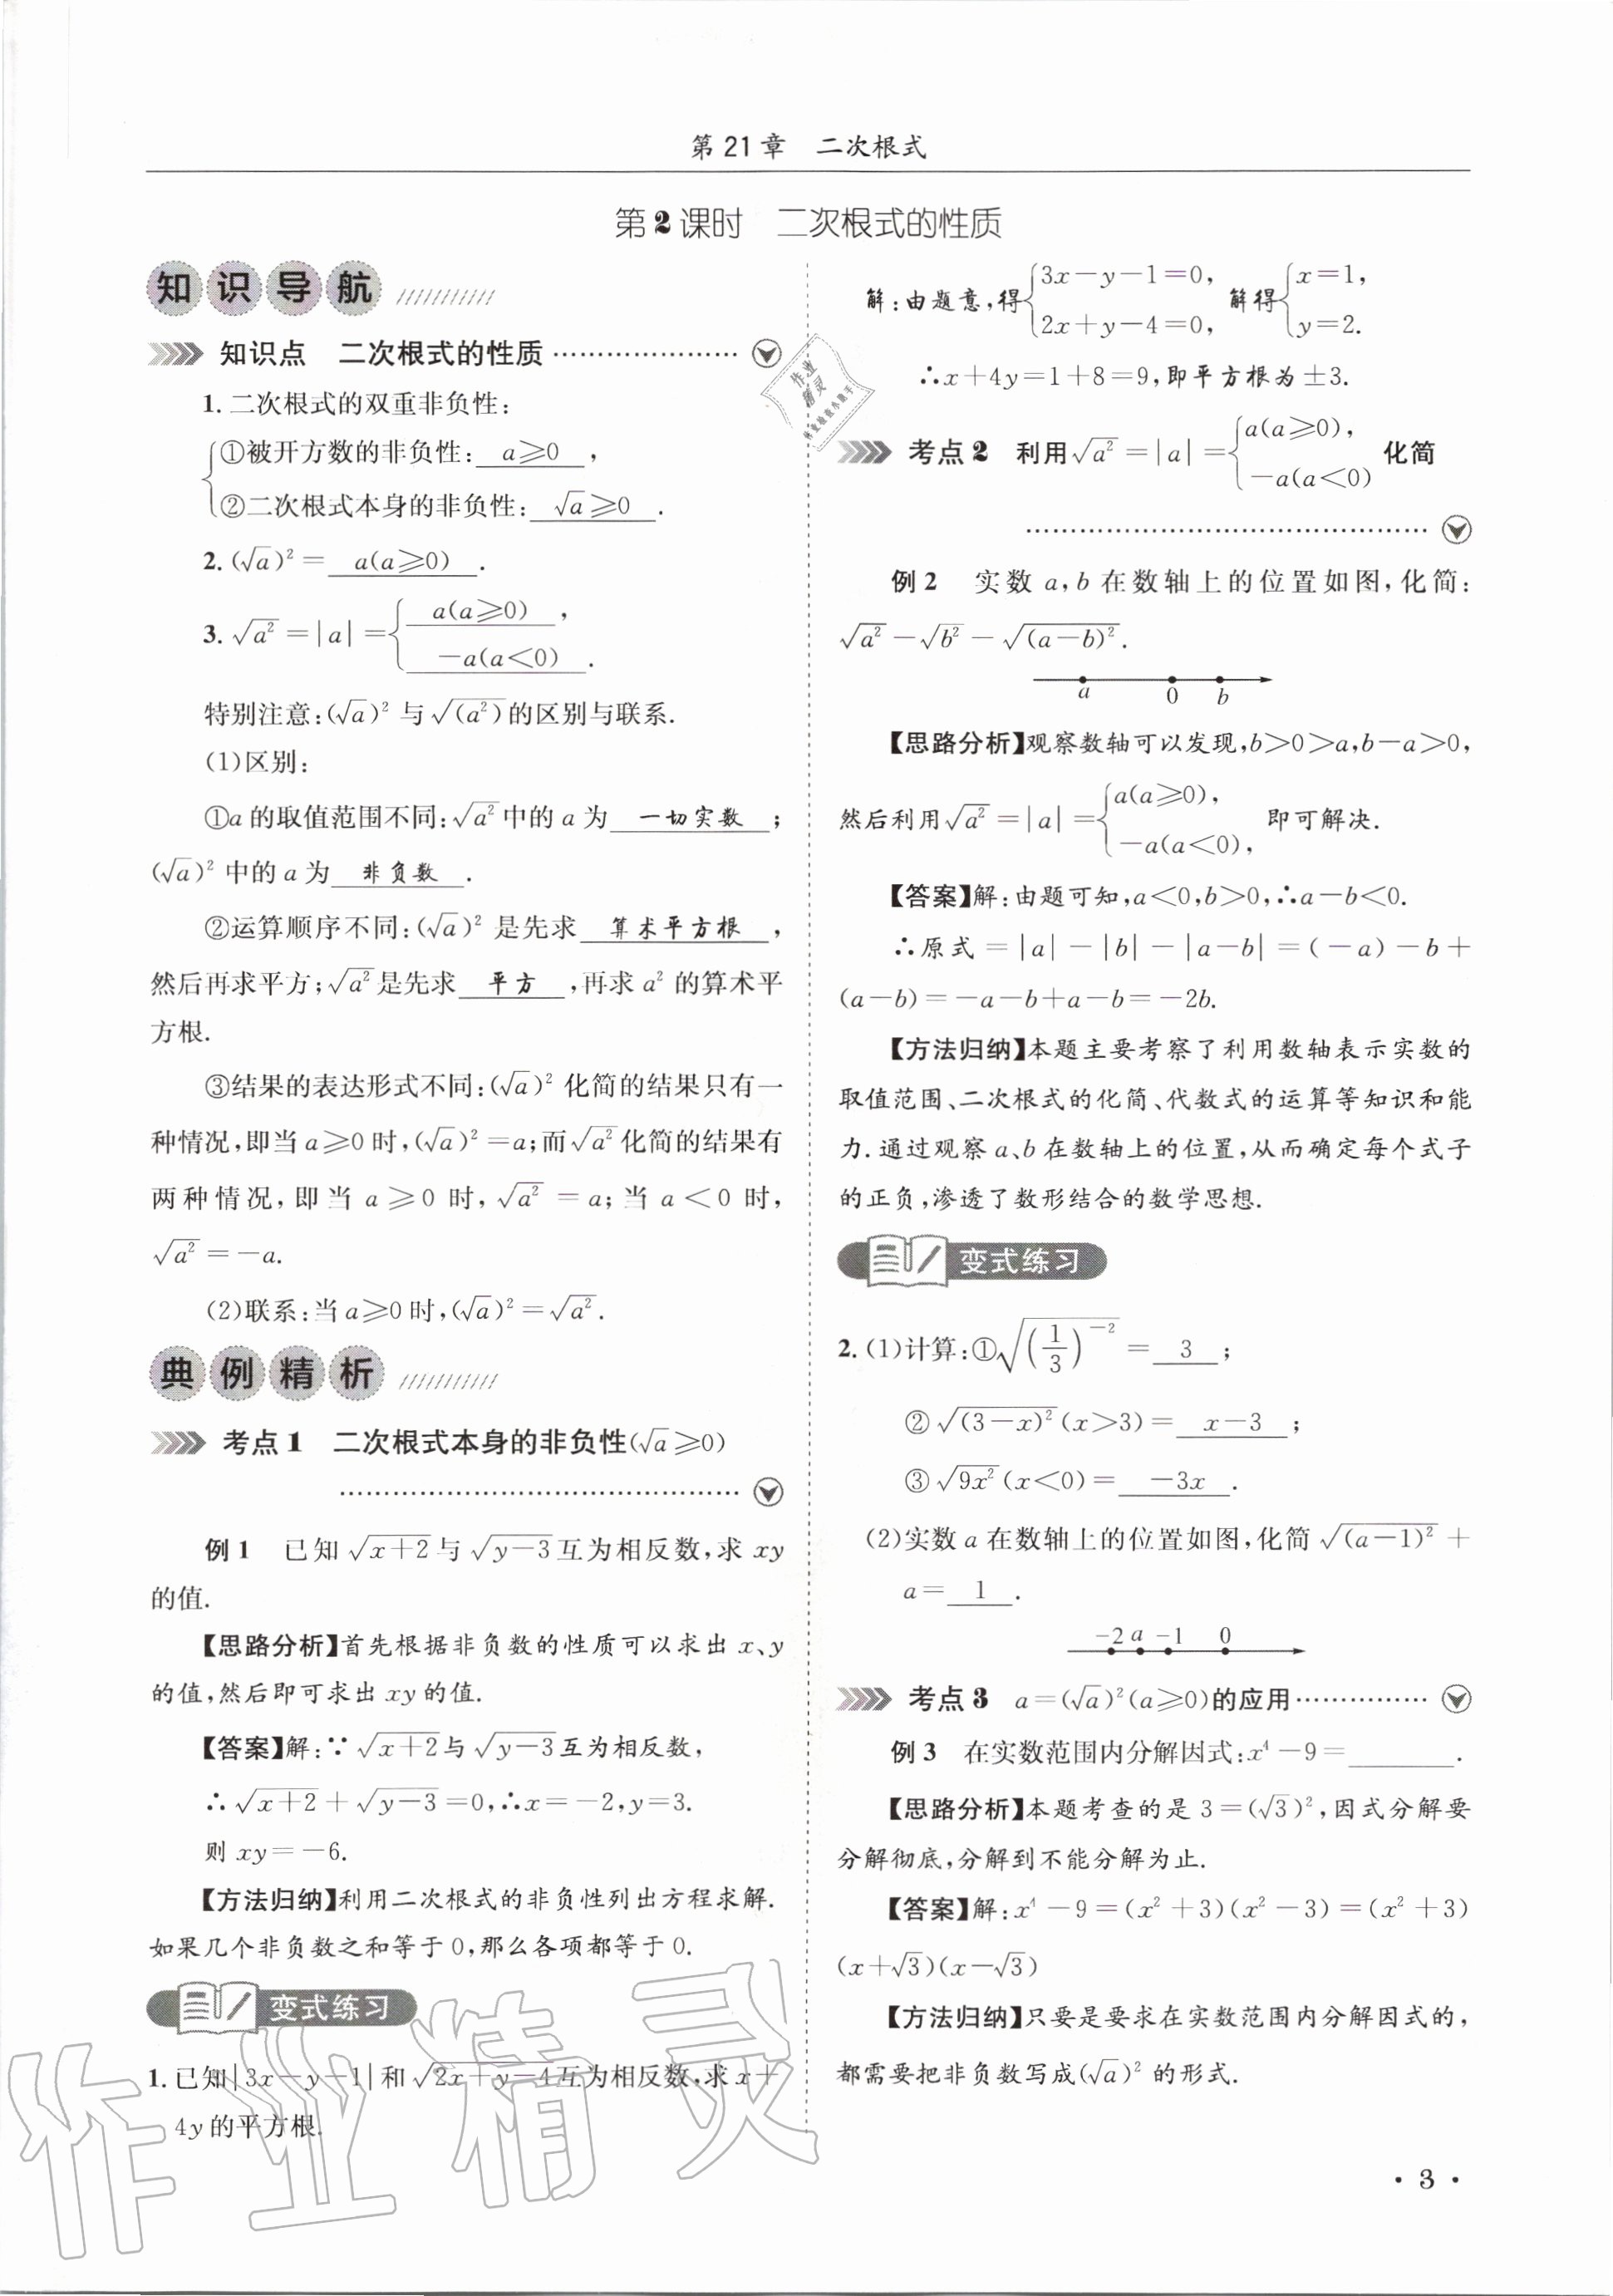 第21章 二次根式
第2课时 二次根式的性质
知识导航
知识点 二次根式的性质
1.二次根式的双重非负性:
①被开方数的非负性: a≥0 ,
②二次根式本身的非负性: √a≥0 .
2.(√a)²= a(a≥0) .
3.√a²=|a|={ a(a≥0) ,
-a(a<0) .
特别注意:(√a)²与√(a²)的区别与联系.
(1)区别:
①a的取值范围不同:√a²中的a为 一切实数 ;
(√a)²中的a为 非负数 .
②运算顺序不同:(√a)²是先求 算术平方根 ,
然后再求平方;√a²是先求 平方 ,再求a²的算术平
方根.
③结果的表达形式不同:(√a)²化简的结果只有一
种情况,即当a≥0时,(√a)²=a;而√a²化简的结果有
两种情况,即当a≥0时,√a²=a;当a<0时,
√a²=-a.
(2)联系:当a≥0时,(√a)²=√a².
典例精析
考点1 二次根式本身的非负性(√a≥0)
例1 已知√(x+2)与√(y-3)互为相反数,求xy
的值.
【思路分析】首先根据非负数的性质可以求出x、y
的值,然后即可求出xy的值.
【答案】解:∵√(x+2)与√(y-3)互为相反数,
∴√(x+2)+√(y-3)=0,∴x=-2,y=3.
则xy=-6.
【方法归纳】利用二次根式的非负性列出方程求解.
如果几个非负数之和等于0,那么各项都等于0.
变式练习
1.已知|3x-y-1|和√(2x+y-4)互为相反数,求x+
4y的平方根.
解:由题意,得{3x-y-1=0, 2x+y-4=0, 解得{x=1, y=2.
∴x+4y=1+8=9,即平方根为±3.
考点2 利用√a²=|a|={a(a≥0), -a(a<0) 化简
例2 实数a,b在数轴上的位置如图,化简:
√a²-√b²-√(a-b)².
a 0 b
【思路分析】观察数轴可以发现,b>0>a,b-a>0,
然后利用√a²=|a|={a(a≥0), -a(a<0), 即可解决.
【答案】解:由题可知,a<0,b>0,∴a-b<0.
∴原式=|a|-|b|-|a-b|=(-a)-b+
(a-b)=-a-b+a-b=-2b.
【方法归纳】本题主要考察了利用数轴表示实数的
取值范围、二次根式的化简、代数式的运算等知识和能
力.通过观察a、b在数轴上的位置,从而确定每个式子
的正负,渗透了数形结合的数学思想.
变式练习
2.(1)计算:①√(1/3)⁻²= 3 ;
②√(3-x)²(x>3)= x-3 ;
③√9x²(x<0)= -3x .
(2)实数a在数轴上的位置如图,化简√(a-1)²+
a= 1 .
-2 a -1 0
考点3 a=(√a)²(a≥0)的应用
例3 在实数范围内分解因式:x⁴-9=______.
【思路分析】本题考查的是3=(√3)²,因式分解要
分解彻底,分解到不能分解为止.
【答案】解:x⁴-9=(x²+3)(x²-3)=(x²+3)
(x+√3)(x-√3)
【方法归纳】只要是要求在实数范围内分解因式的,
都需要把非负数写成(√a)²的形式.
·3·
作业精灵
作业
精灵